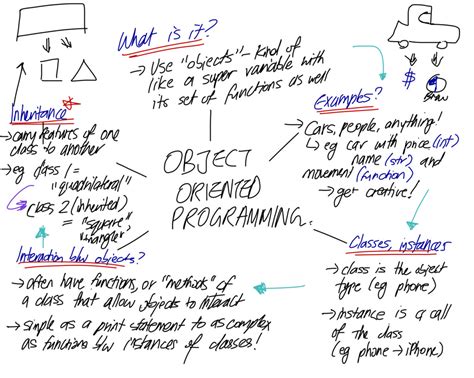 What is it?
→ Use "objects" - kind of
like a super variable with
its set of functions as well
Examples?
→ Cars, people, anything!
↳ eg car with price (int)
name (str) and
movement (function)
→ get creative!
$
Inheritance *
→ carry features of one
class to another
→ eg class 1 =
"quadrilateral"
class 2 (inherited)
= "square",
"triangle"
OBJECT
ORIENTED
PROGRAMMING.
Interaction b/w objects?
→ often have functions, or "methods" of
a class that allow objects to interact
→ simple as a print statement to as complex
as functions b/w instances of classes!
Classes, instances
→ class is the object
type (eg phone)
→ instance is a call
of the class
(eg phone → iPhone)